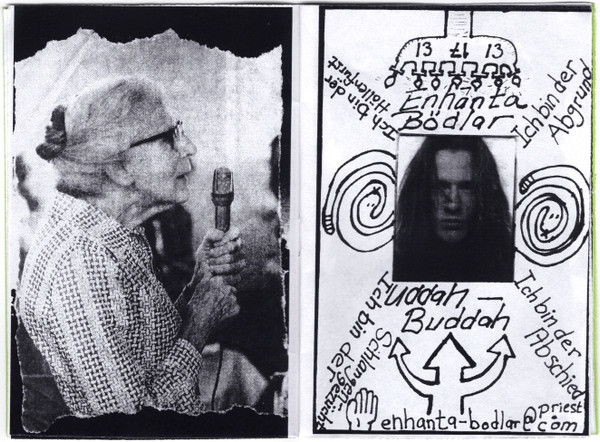 13 17 13
Ich bin der
Höllenfürst
Enhanta
Bödlar
Ich bin der
Abgrund
uddah —
Buddah
Ich bin der
Schlangen-
gezücht
Ich bin der
Abschied
enhanta-bodlar@priest.com